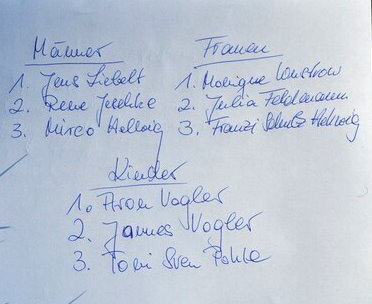 Männer
1. Jens Liebelt
2. Rene Jeschke
3. Mirco Hellwig
Frauen
1. Monique Wustrow
2. Julia Feldmann
3. Franzi Schulz Hellwig
Kinder
1. Aron Vogler
2. Jannes Vogler
3. Toni Sven Pohle